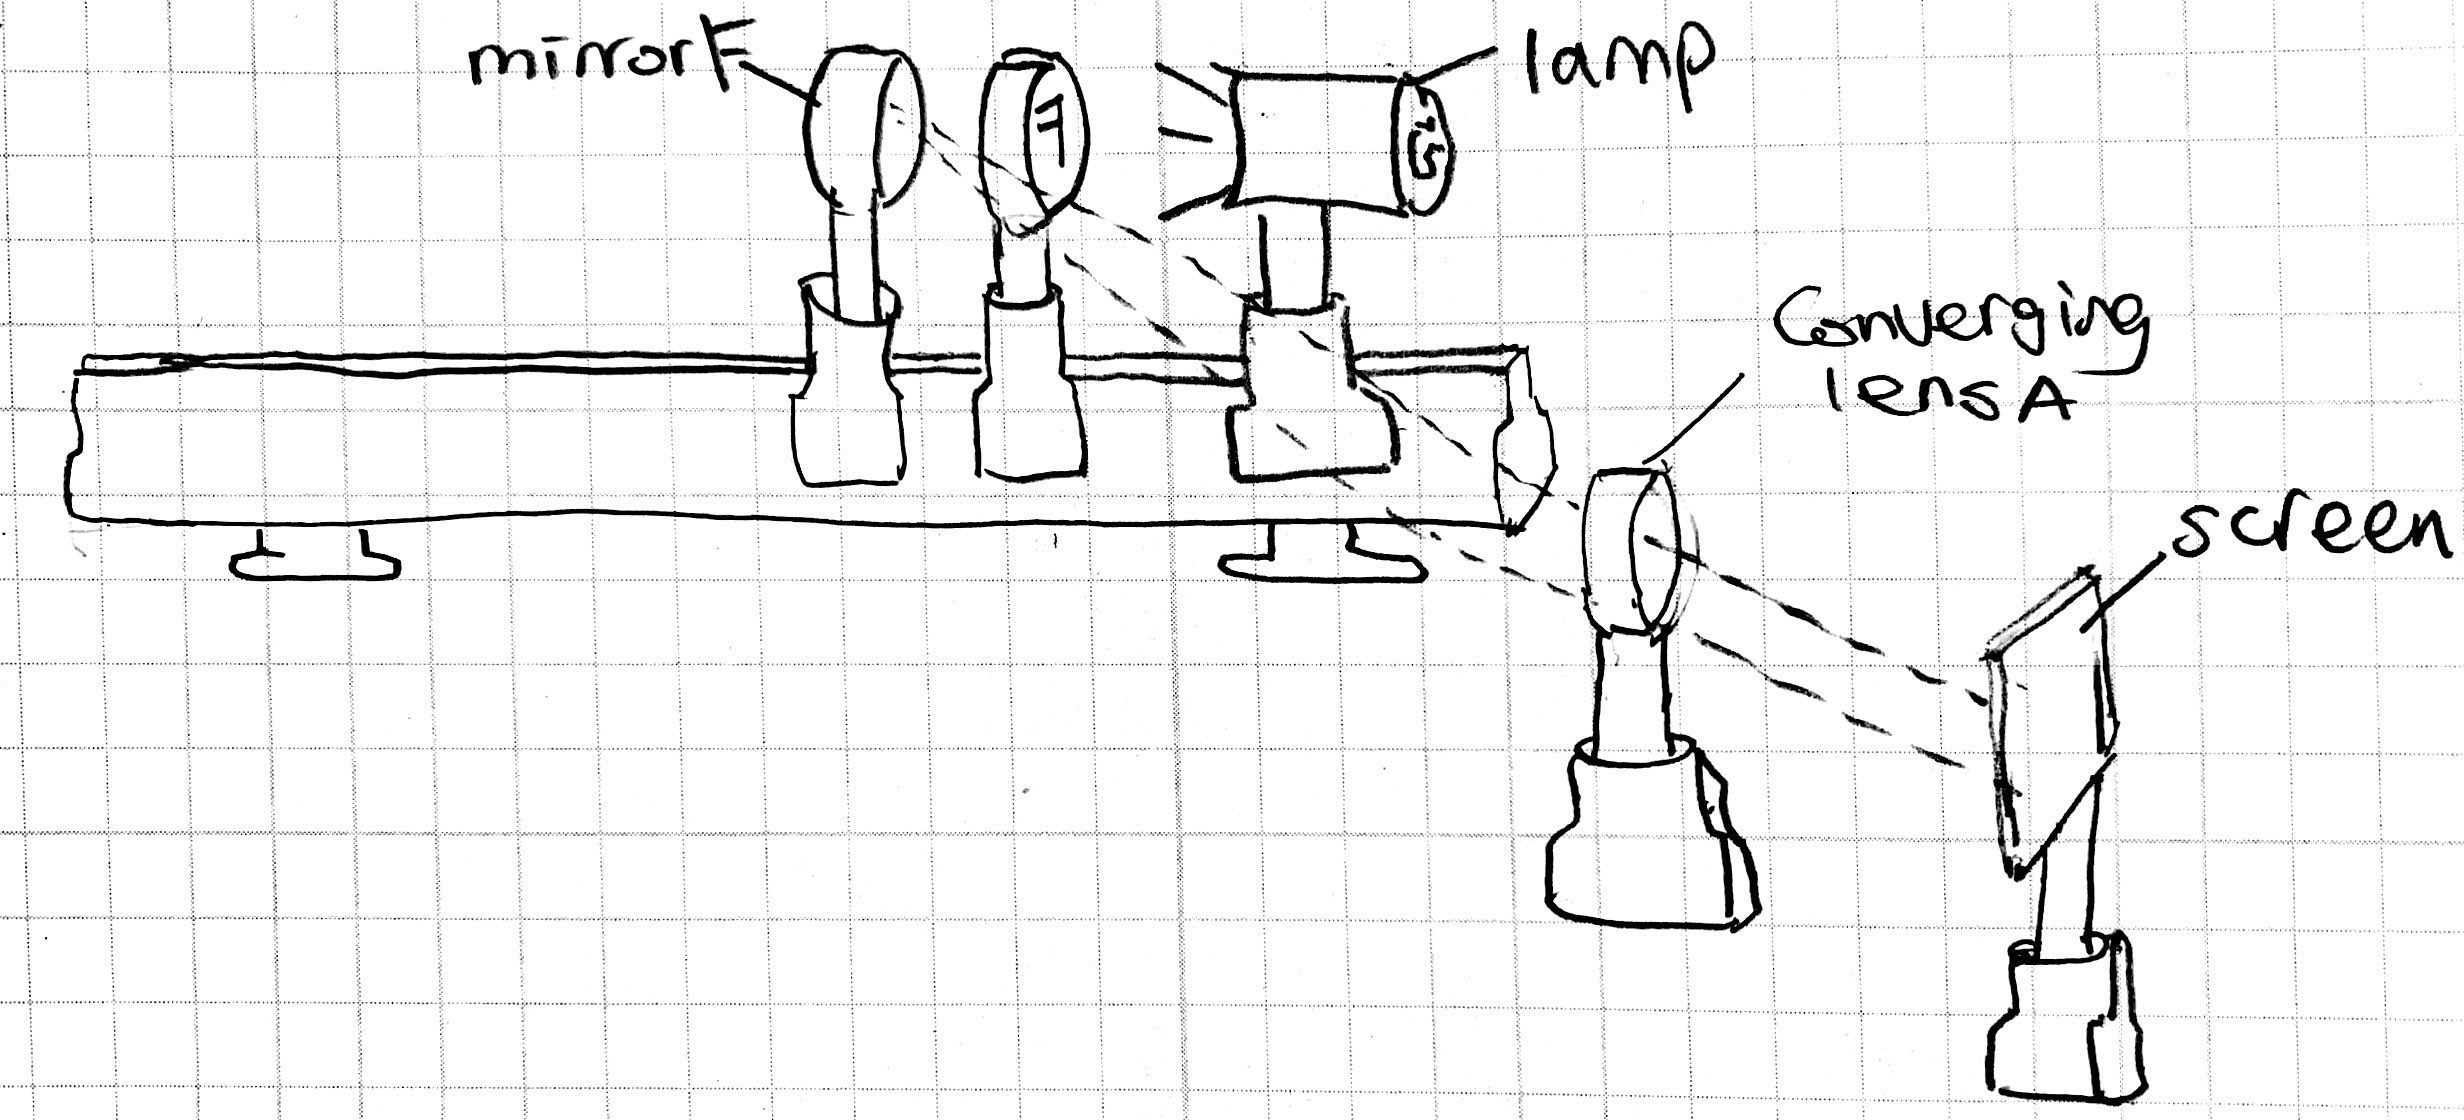 mirror F
lamp
Converging
lens A
screen